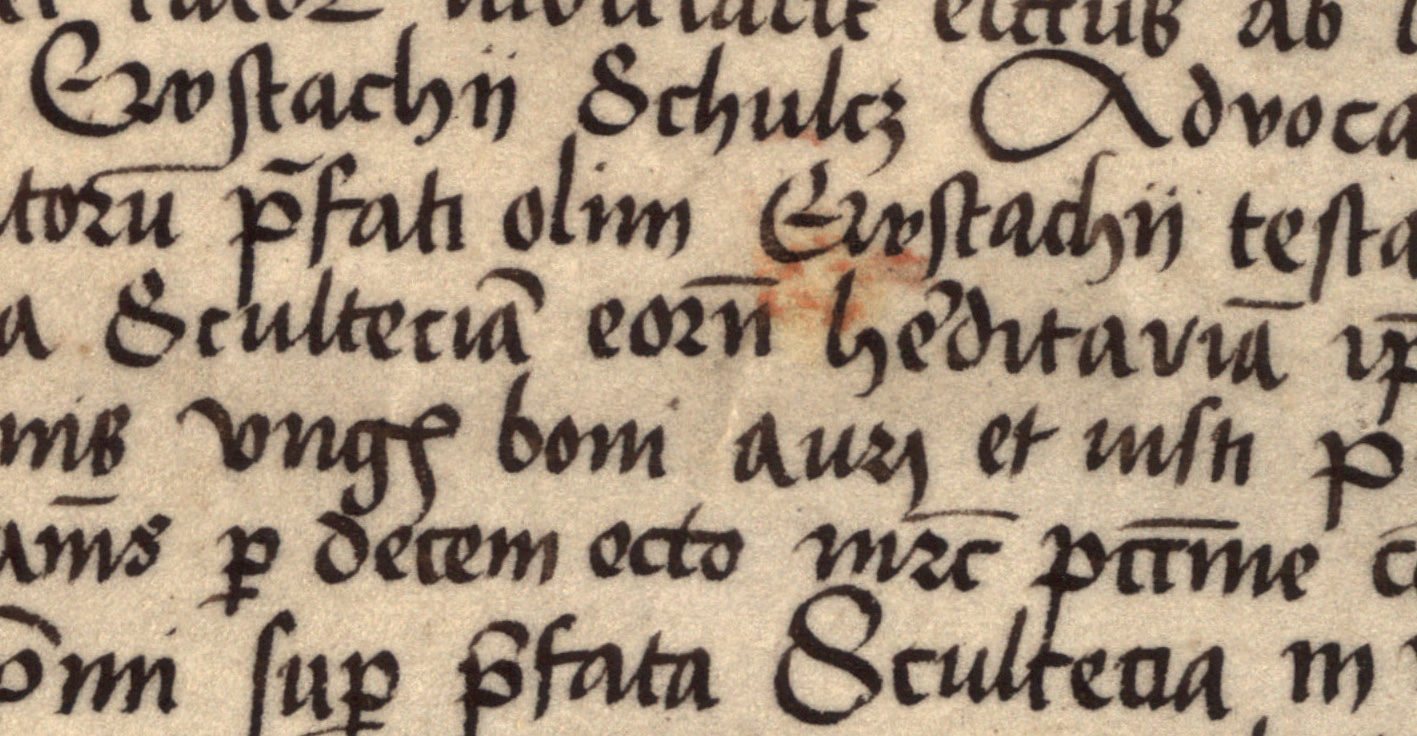 ellus ab
Ewstachij Schulcz Advoca
torū p̄fati olim Ewstachij testa
a Sculteciā eorū̄ hęditariā ip̄
nis vng̃ boni auri et iusti p
am̄s ꝑ decem octo mr̄c pct̄īne c̄
om̄i suꝑ p̄fata Scultecia in